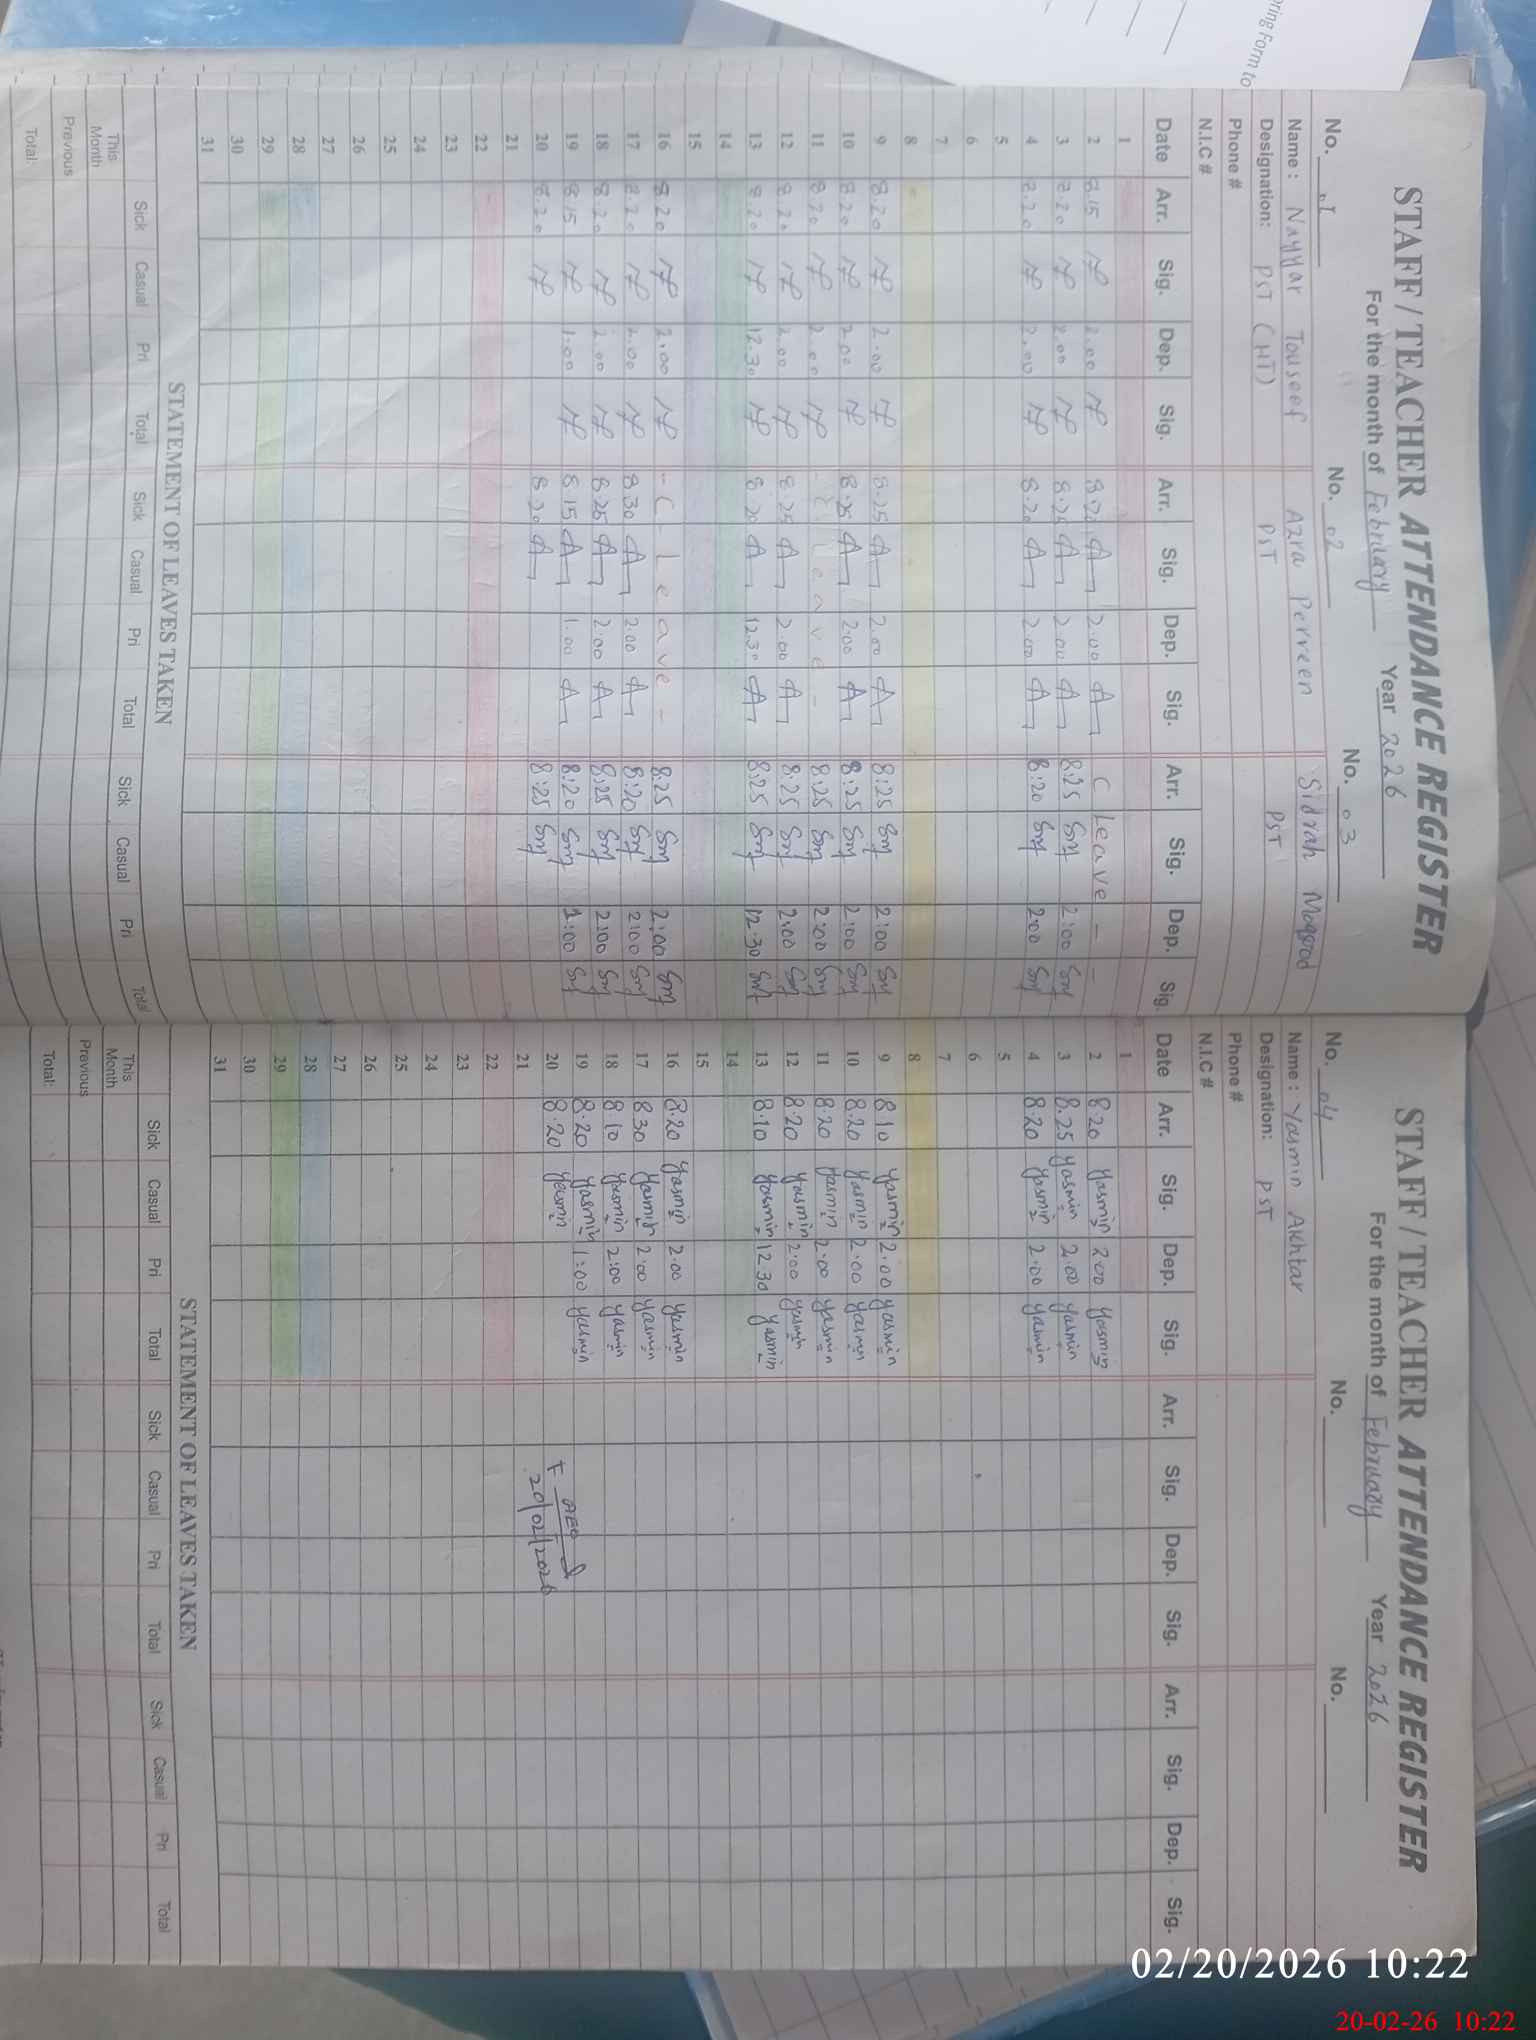 ring Form to
STAFF / TEACHER ATTENDANCE REGISTER
For the month of February Year 2026
No. 01 No. 02 No. 03
Name : Nayyar Touseef Azra Perveen Sidrah Maqsood
Designation: PST (HT) PST PST
Phone #
N.I.C #
Date Arr. Sig. Dep. Sig. Arr. Sig. Dep. Sig. Arr. Sig. Dep. Sig.
1
2 8.15 2.00 8.20 2.00 C Leave - -
3 8.20 2.00 8.25 2.00 8:25 2:00
4 8.20 2.00 8.20 2.00 8:20 2:00
5
6
7
8
9 8.20 2.00 8.25 2.00 8:25 2:00
10 8.20 2.00 8.25 2.00 8:25 2:00
11 8.20 2.00 - C Leave - 8:25 2:00
12 8.20 2.00 8.25 2.00 8:25 2:00
13 8.20 12.30 8.20 12.30 8:25 12.30
14
15
16 8.20 2.00 - C - Leave - 8:25 2:00
17 8.20 2.00 8.30 2.00 8:20 2:00
18 8.20 2.00 8.25 2.00 8:25 2:00
19 8.15 1.00 8.15 1.00 8:20 1:00
20 8.20 8.20 8:25
21
22
23
24
25
26
27
28
29
30
31
STATEMENT OF LEAVES TAKEN
Sick Casual Pri Total Sick Casual Pri Total Sick Casual Pri Total
This Month
Previous
Total:
STAFF / TEACHER ATTENDANCE REGISTER
For the month of February Year 2026
No. 04 No. No.
Name : Yasmin Akhtar
Designation: PST
Phone #
N.I.C #
Date Arr. Sig. Dep. Sig. Arr. Sig. Dep. Sig. Arr. Sig. Dep. Sig.
1
2 8.20 Yasmin 2.00 Yasmin
3 8.25 Yasmin 2.00 Yasmin
4 8.20 Yasmin 2.00 Yasmin
5
6
7
8
9 8.10 Yasmin 2.00 Yasmin
10 8.20 Yasmin 2.00 Yasmin
11 8.20 Yasmin 2:00 Yasmin
12 8.20 Yasmin 2:00 Yasmin
13 8.10 Yasmin 12.30 Yasmin
14
15
16 8.20 Yasmin 2.00 Yasmin
17 8.30 Yasmin 2.00 Yasmin
18 8.10 Yasmin 2:00 Yasmin
19 8.20 Yasmin 1:00 Yasmin
20 8.20 Yasmin
AEO
20/02/2026
21
22
23
24
25
26
27
28
29
30
31
STATEMENT OF LEAVES TAKEN
Sick Casual Pri Total Sick Casual Pri Total Sick Casual Pri Total
This Month
Previous
Total:
02/20/2026 10:22
20-02-26 10:22